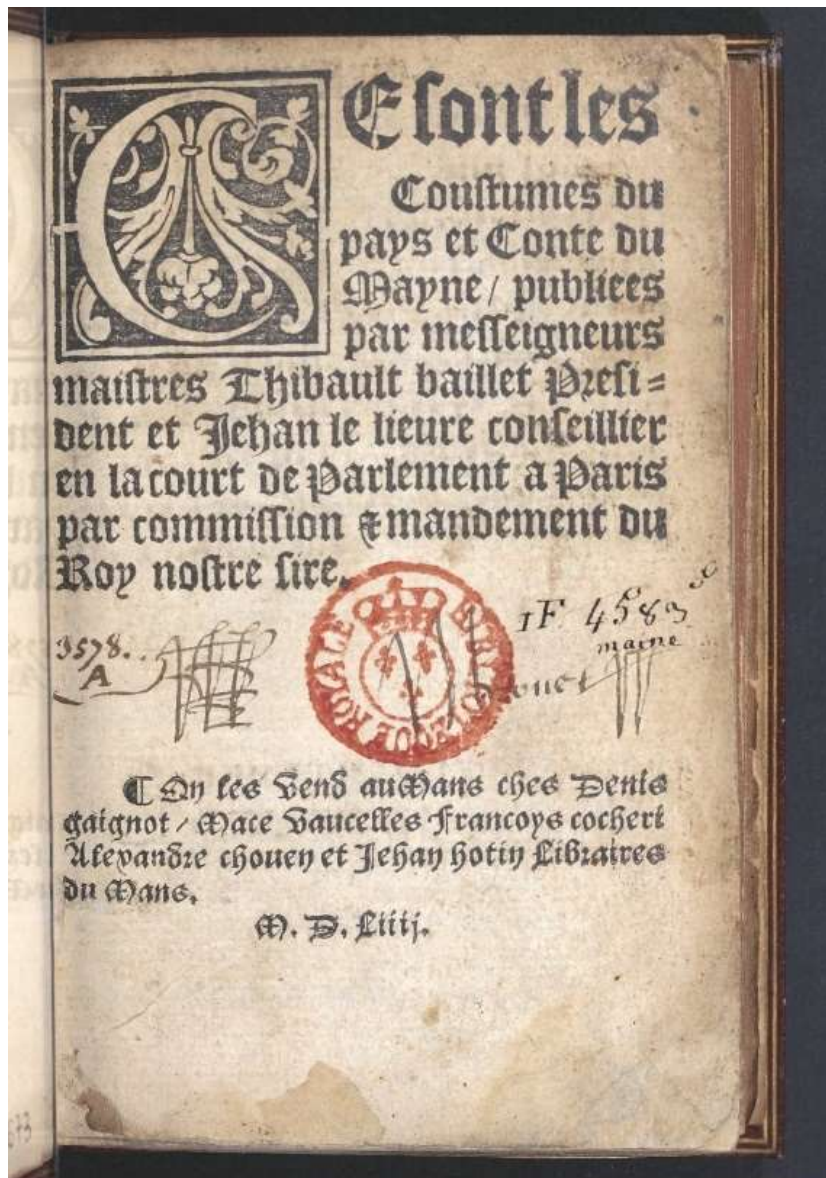 CE sont les
Coustumes du
pays et Conte du
Mayne / publiees
par messeigneurs
maistres Thibault baillet Presi=
dent et Jehan le lieure conseillier
en la court de Parlement a Paris
par commission & mandement du
Roy nostre sire.
1F 4583
maine
3578.
A
BIBLIOTHEQUE ROYALE
¶ On les vend au Mans ches Denis
gaignot / Mace Vaucelles Francoys cocheri
Alexandre chouen et Jehan hotin Libraires
du Mans.
M. D. Liiij.